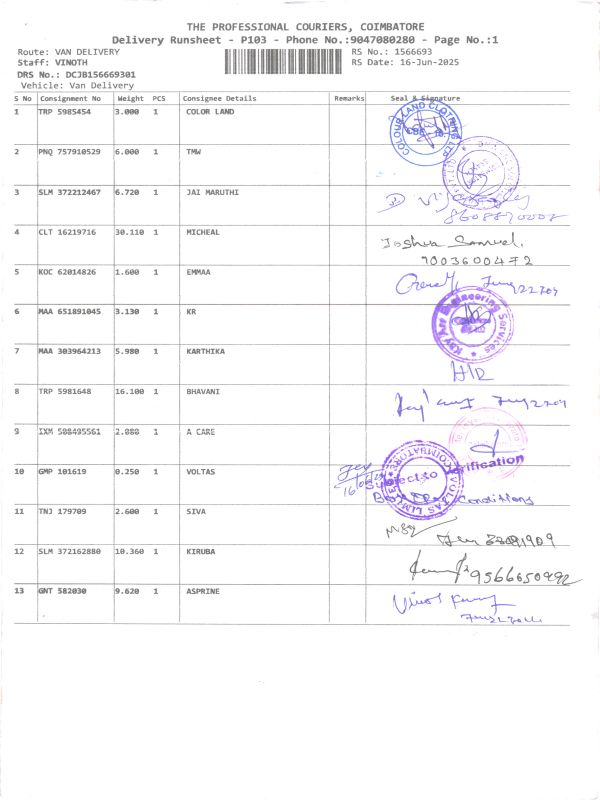 THE PROFESSIONAL COURIERS, COIMBATORE
Delivery Runsheet - P103 - Phone No.:9047080280 - Page No.:1
Route: VAN DELIVERY
RS No.: 1566693
Staff: VINOTH
RS Date: 16-Jun-2025
DRS No.: DCJB156669301
Vehicle: Van Delivery
S No Consignment No Weight PCS Consignee Details Remarks Seal & Signature
1 TRP 5985454 3.000 1 COLOR LAND
COLOUR LAND CLOTHING
2 PNQ 757910529 6.000 1 TMW
3 SLM 372212467 6.720 1 JAI MARUTHI
4 CLT 16219716 30.110 1 MICHEAL
Joshua Samuel.
7003600472
5 KOC 62014826 1.600 1 EMMAA
6 MAA 651891045 3.130 1 KR
Engineering Services
7 MAA 303964213 5.980 1 KARTHIKA
8 TRP 5981648 16.100 1 BHAVANI
9 IXM 508495561 2.080 1 A CARE
10 GMP 101619 0.250 1 VOLTAS
VOLTAS LIMITED COIMBATORE
Subject to Verification
Conditions
11 TNJ 179709 2.600 1 SIVA
12 SLM 372162880 10.360 1 KIRUBA
9566650992
13 GNT 582030 9.620 1 ASPRINE